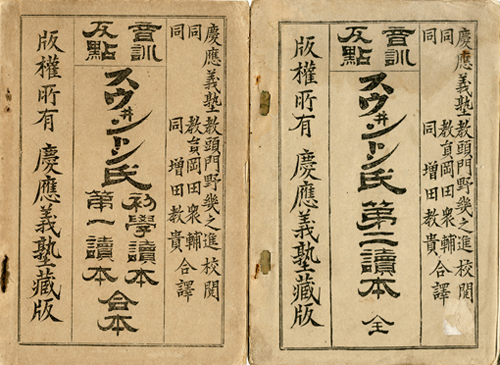 慶應義塾教頭門野幾之進校閲
同 教員岡田衆輔
同 同 增田教貴 合譯
音訓
反點
スウ井ントン氏
初學讀本
第一讀本
合本
版權所有 慶應義塾藏版
慶應義塾教頭門野幾之進校閲
同 教員岡田衆輔
同 同 增田教貴 合譯
音訓
反點
スウ井ントン氏 第二讀本 全
版權所有 慶應義塾藏版